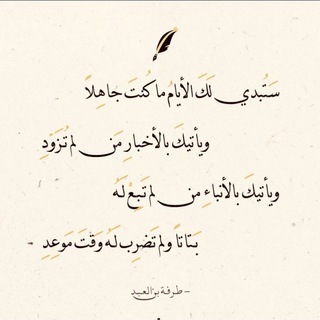 سَتُبدي لَكَ الأيامُ ما كُنتَ جاهِلاً
ويأتيكَ بالأخبارِ مَن لم تُزَوِّدِ
ويأتيكَ بالأنباءِ من لم تَبِعْ لَهُ
بَتاتاً ولم تَضرِب لَهُ وَقتَ مَوعِدِ
- طرفة بن العبد